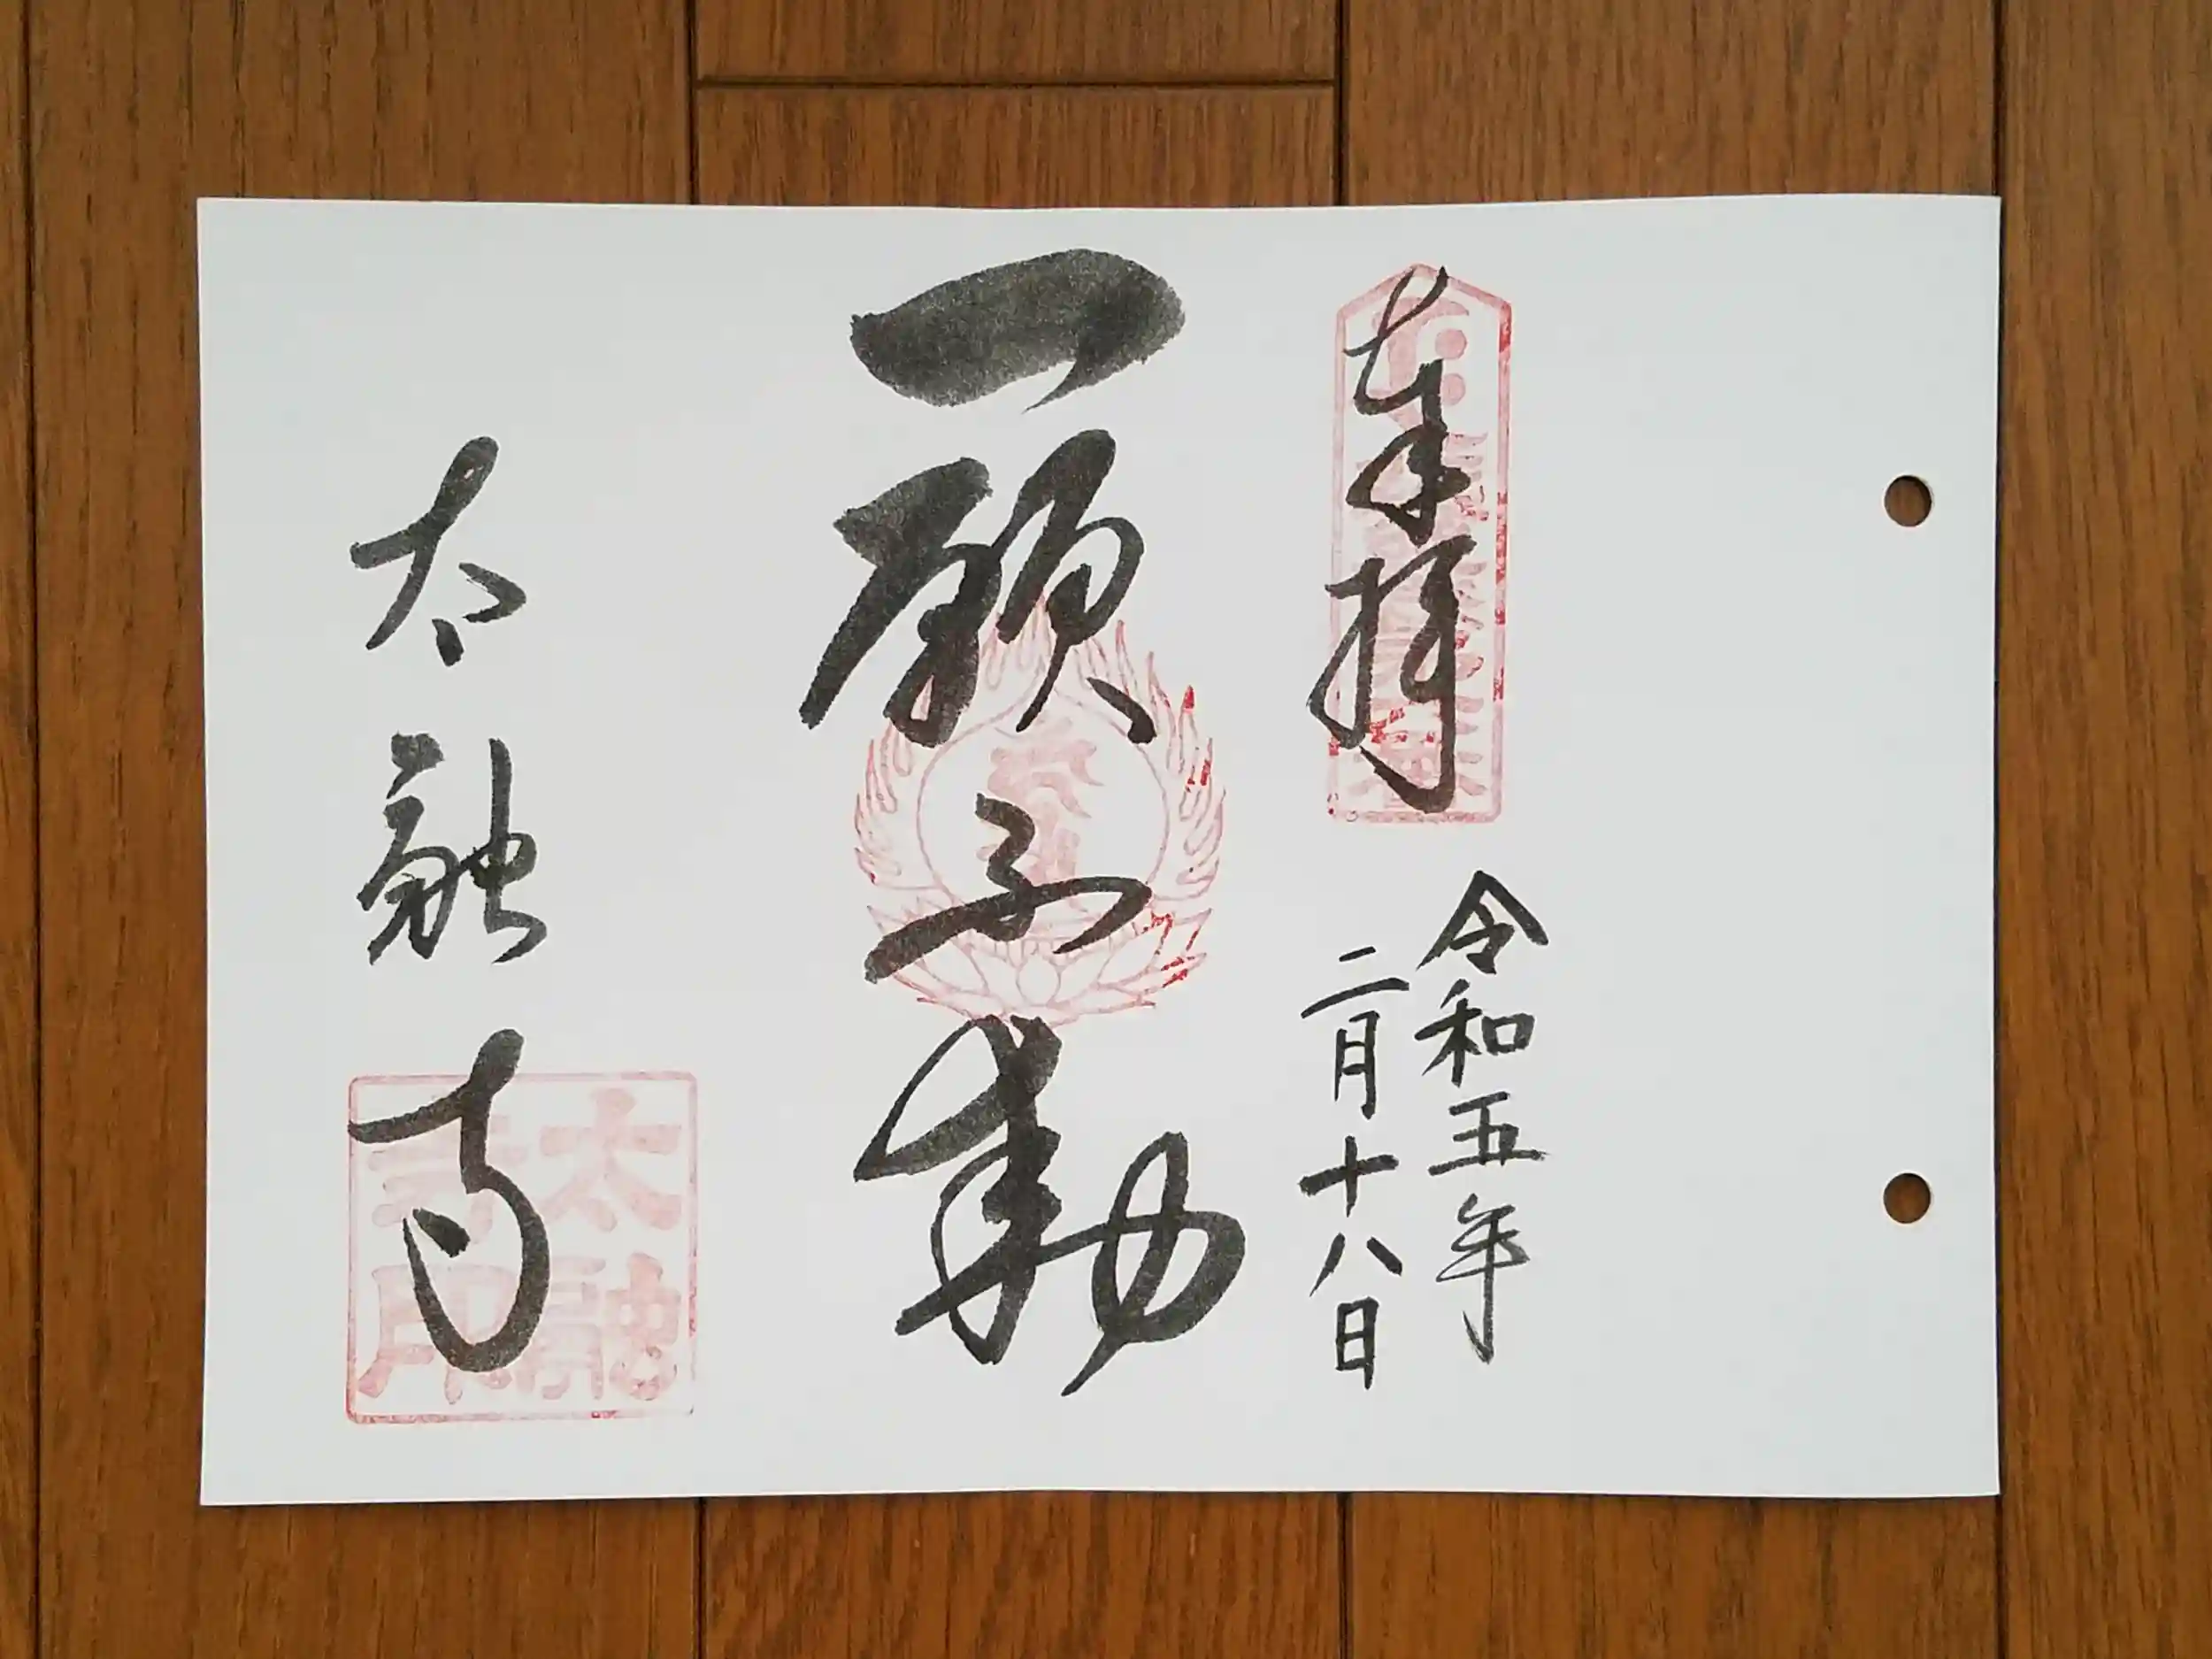 奉拝
令和五年
二月十八日
一願不動
太融寺
太融
寺印